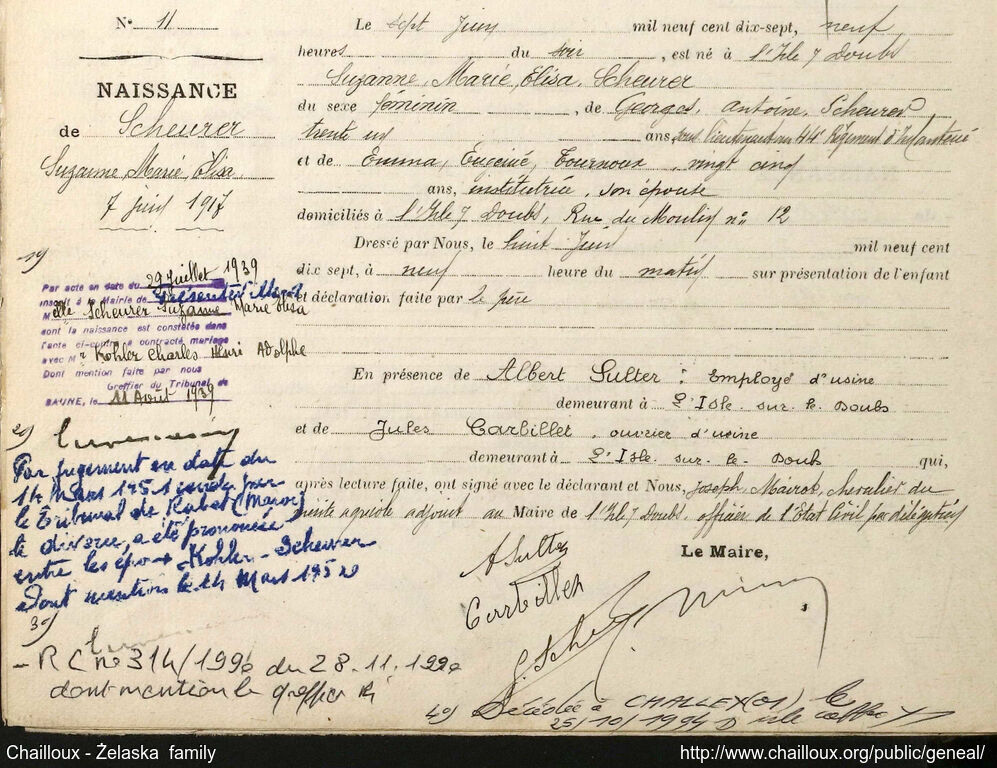 N° 11
NAISSANCE
de Scheurer
Suzanne, Marie, Elisa
7 juin 1917
Le sept Juin mil neuf cent dix-sept, neuf
heures du soir, est né à l'Isle s/ Doubs
Suzanne, Marie, Elisa, Scheurer
du sexe féminin, de Georges, Antoine, Scheurer
trente un ans, sous lieutenant au 44e Régiment d'Infanterie
et de Emma, Eugénie, Tournoux, vingt cinq
ans, institutrice, son épouse
domiciliés à l'Isle s/ Doubs, Rue du Moulin n° 12
Dressé par Nous, le huit Juin mil neuf cent
dix sept, à neuf heure du matin sur présentation de l'enfant
et déclaration faite par le père
En présence de Albert Sulter : Employé d'usine
demeurant à L'Isle-sur-le-Doubs
et de Jules Carbillet, ouvrier d'usine
demeurant à L'Isle-sur-le-Doubs qui,
après lecture faite, ont signé avec le déclarant et Nous, Joseph, Mairot, chevalier du
mérite agricole adjoint au Maire de l'Isle s/ Doubs, officier de l'Etat Civil par délégation
Le Maire,
A Sulter
Carbillet
G. Scheurer
1°)
Par acte en date du 29 Juillet 1939
inscrit à la Mairie de
Melle Scheurer Suzanne Marie Elisa
dont la naissance est constatée dans
l'acte ci-contre a contracté mariage
avec Mr Kohler Charles Henri Adolphe
Dont mention faite par nous
Greffier du Tribunal de
BAUNE, le 11 Août 1939
2°)
Par jugement en date du
14 Mars 1951 rendu par
le Tribunal de Rabat (Maroc)
le divorce, a été prononcé
entre les époux Kohler - Scheurer
Dont mention le 14 Mars 1952
3°)
- RC n° 314/1990 du 28.11.1990
dont mention le greffier
4°) Décédée à CHALLEX (01) le
25/10/1994
Chailloux - Żelaska family
http://www.chailloux.org/public/geneal/